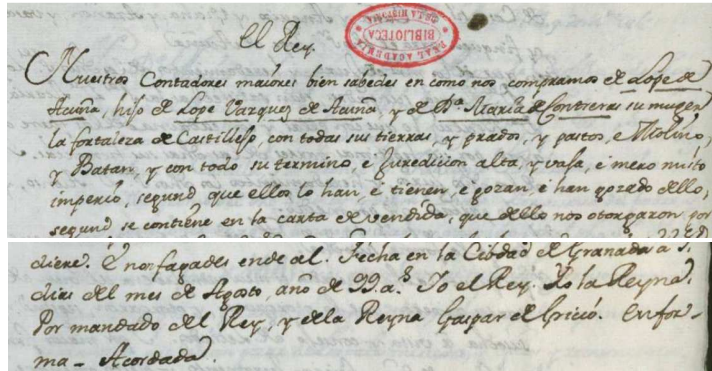 El Rey.
REAL ACADEMIA DE LA HISTORIA
BIBLIOTECA
Nuestros Contadores maiores bien sabedes en como nos compramos de Lope de
Acuña, hijo de Lope Vazquez de Acuña, y de Dª. Maria de Contreras su muger
la fortaleza de Castillejo, con todas sus tierras, y prados, y pastos, e Molino,
y Batan, y con todo su termino, é Juredicion alta, y vaja, é mero misto
imperio, segund que ellos lo han, é tienen, é gozan, é han gozado dello,
segund se contiene en la carta de vendida, que dello nos otorgaron por
diere. E non fagades ende al. Fecha en la Cibdad de Granada a
dias del mes de Agosto, año de 99.aˢ. Yo el Rey. Yo la Reyna.
Por mandado del Rey, y de la Reyna Gaspar de Gricio. En for-
ma - Acordada.